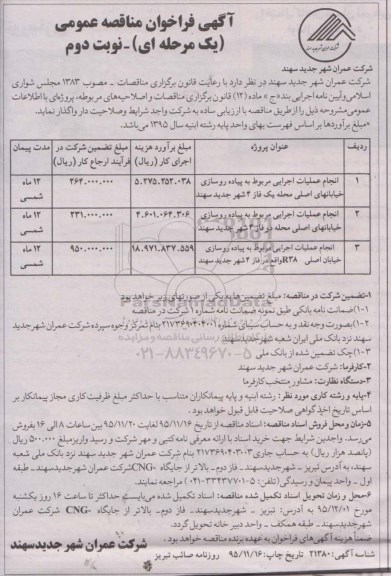 آگهی فراخوان مناقصه عمومی
(یک مرحله ای) - نوبت دوم
شرکت عمران شهر جدید سهند
شرکت عمران شهر جدید سهند در نظر دارد با رعایت قانون برگزاری مناقصات - مصوب ۱۳۸۳ مجلس شورای
اسلامی و آیین نامه اجرایی بند «ج» ماده (۱۲) قانون برگزاری مناقصات و اصلاحیه های مربوطه، پروژه ای با اطلاعات
عمومی مشروحه ذیل را از طریق مناقصه با ارزیابی ساده به شرکت واجد شرایط وصلاحیت دار واگذار نماید.
*مبلغ برآوردها بر اساس فهرست بهای واحد پایه رشته ابنیه سال ۱۳۹۵ می باشد.
ردیف عنوان پروژه مبلغ برآورد هزینه اجرای کار (ریال) مبلغ تضمین شرکت در فرآیند ارجاع کار (ریال) مدت پیمان
۱ انجام عملیات اجرایی مربوط به پیاده روسازی خیابانهای اصلی محله یک فاز ۴ شهر جدید سهند ۵.۲۷۵.۲۵۲.۰۳۸ ۲۶۴.۰۰۰.۰۰۰ ۱۲ ماه شمسی
۲ انجام عملیات اجرایی مربوط به پیاده روسازی خیابانهای اصلی محله دو فاز ۴ شهر جدید سهند ۴.۶۰۱.۰۶۴.۳۰۶ ۲۳۱.۰۰۰.۰۰۰ ۱۲ ماه شمسی
۳ انجام عملیات اجرایی مربوط به پیاده روسازی خیابان اصلی R38 واقع در فاز ۴ شهر جدید سهند ۱۸.۹۷۱.۸۳۷.۵۵۹ ۹۵۰.۰۰۰.۰۰۰ ۱۲ ماه شمسی
۱-تضمین شرکت در مناقصه: مبلغ تضمین ها به یکی از صورتهای زیر خواهد بود
۱-۱)ضمانت نامه بانکی طبق نمونه ضمانت نامه شماره ۱ شرکت در مناقصه
۱-۲)بصورت وجه نقد و به حساب سیبای شماره ۲۱۷۳۶۹۰۴۰۴۰۰۱ بنام تمرکز وجوه سپرده شرکت عمران شهر جدید
سهند نزد بانک ملی ایران شعبه شهر جدید سهند
۱-۳)چک تضمین شده از بانک ملی
۲-کارفرما: شرکت عمران شهر جدید سهند
۳-دستگاه نظارت: مشاور منتخب کارفرما
۴-پایه و رشته کاری مورد نظر: رشته ابنیه و پایه پیمانکاران متناسب با حداکثر ظرفیت کاری مجاز پیمانکار بر
اساس تاریخ اخذ گواهی صلاحیت قابل قبول خواهد بود.
۵-زمان و محل فروش اسناد مناقصه: اسناد مناقصه از تاریخ ۹۵/۱۱/۱۶ لغایت ۹۵/۱۱/۲۰ بین ساعات ۸ الی ۱۶ بفروش
می رسد، واجدین شرایط جهت خرید اسناد با ارائه معرفی نامه کتبی و مهر شرکت و رسید واریز مبلغ ۵۰۰.۰۰۰ ریال
(پانصد هزار ریال) به حساب جاری ۲۱۷۳۶۹۰۴۰۳۰۰۳ بنام شرکت عمران شهر جدید سهند نزد بانک ملی شعبه
سهند، به آدرس تبریز - شهر جدید سهند- فاز دوم- بالاتر از جایگاه CNG- شرکت عمران شهر جدید سهند- طبقه
اول - واحد پیمان و رسیدگی (تلفن: ۵-۳۳۴۳۷۷۰۱-۰۴۱) مراجعه نمایند.
۶-محل و زمان تحویل اسناد تکمیل شده مناقصه: اسناد تکمیل شده می بایستی حداکثر تا ساعت ۱۶ روز یکشنبه
مورخ ۹۵/۱۲/۰۱ به آدرس: تبریز - شهر جدید سهند- فاز دوم- بالاتر از جایگاه CNG- شرکت عمران
شهر جدید سهند- طبقه همکف - واحد دبیر خانه تحویل گردد.
ضمنا هزینه آگهی های فراخوان به عهده برنده مناقصه خواهد بود.
شرکت عمران شهر جدید سهند
شناسه آگهی: ۲۱۳۸۰ تاریخ چاپ: ۹۵/۱۱/۱۶ روزنامه صائب تبریز
ParsNamadData
۰۲۱-۸۸۳۴۹۶۷۰-۵